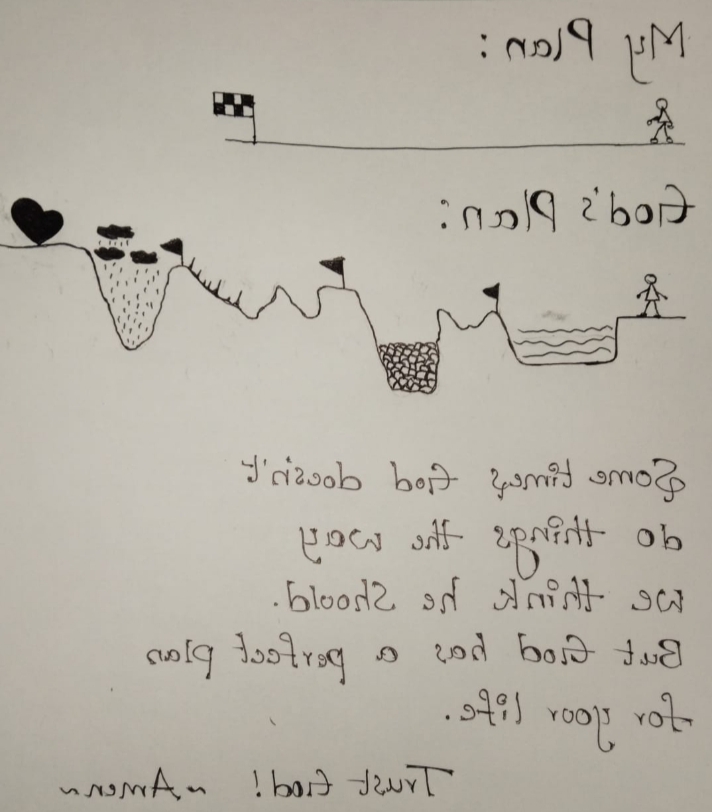 My Plan:
God's Plan:
Some times God doesn't
do things the way
we think he should.
But God has a perfect plan
for your life.
Trust God! ~Amen~